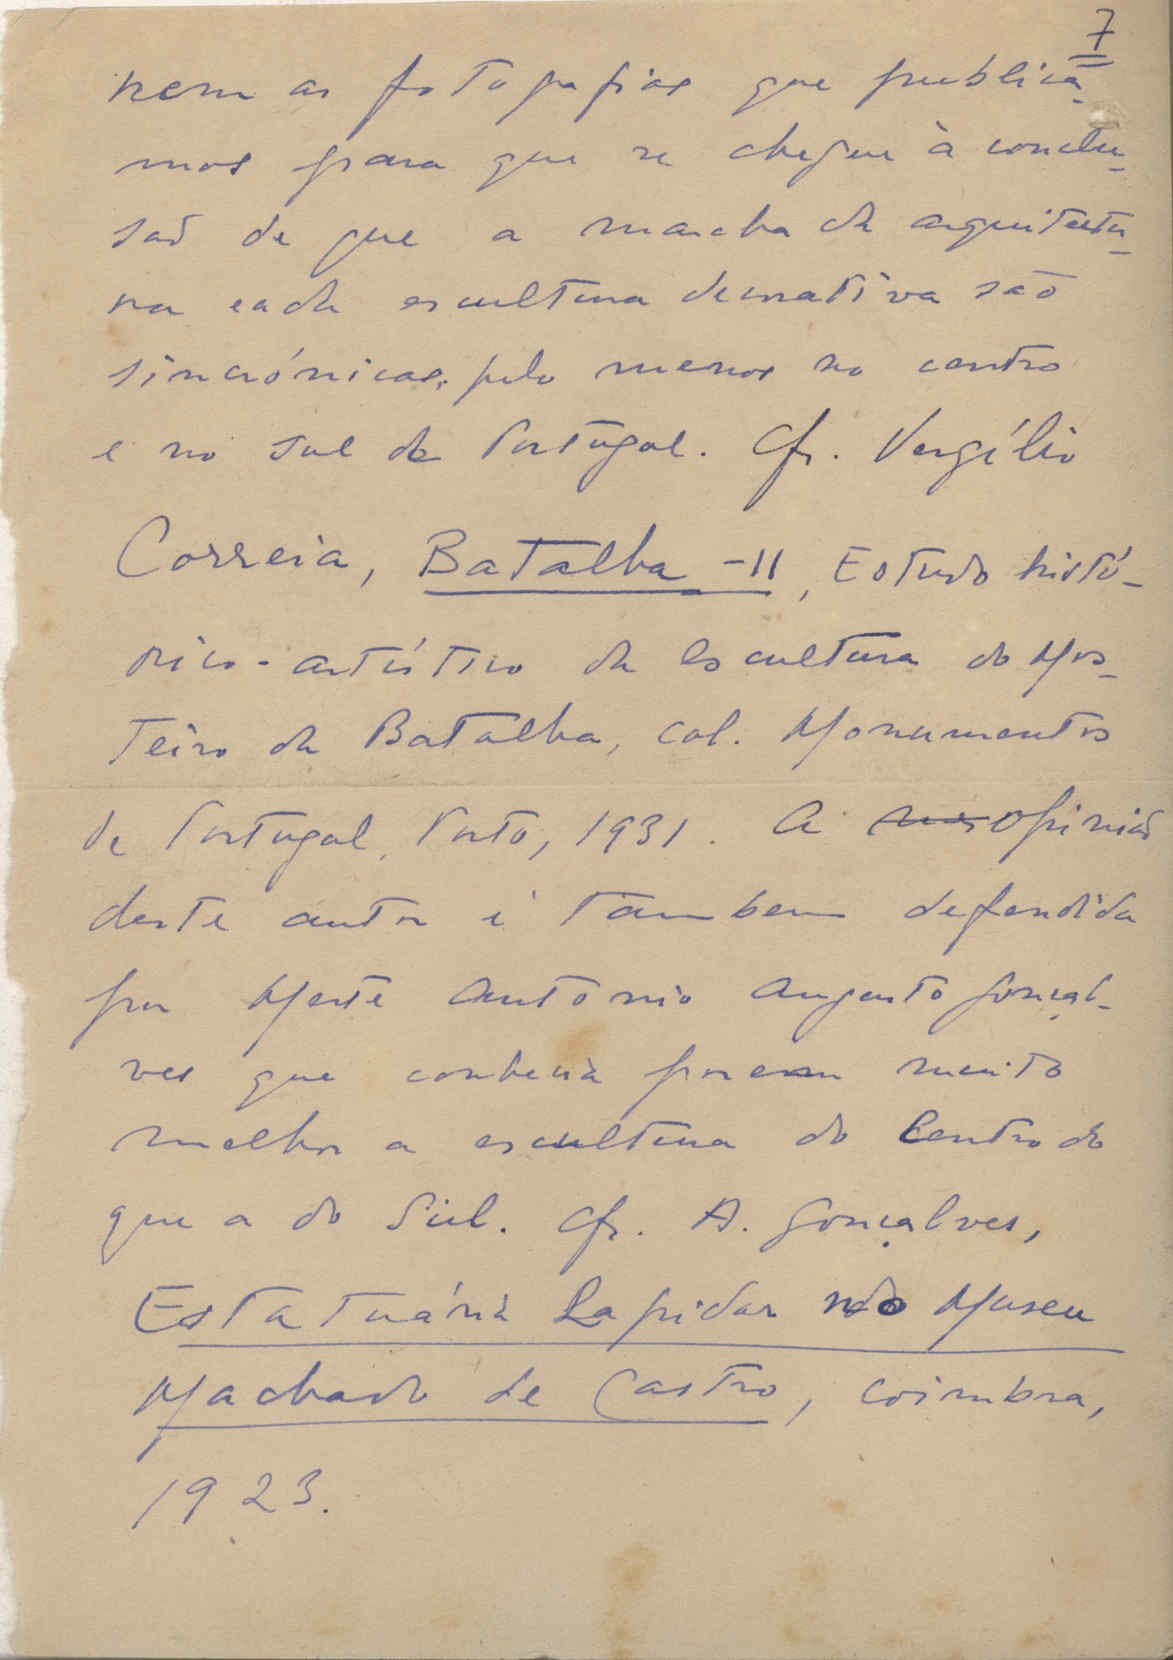 7
nem as fotografias que publica-
mos para que se chegue à conclu-
são de que a marcha da arquitectu-
ra e a da escultura decorativa são
sincrónicas, pelo menos no centro
e no sul de Portugal. Cfr. Vergílio
Correia, Batalha - II, Estudo histó-
rico-artístico da escultura do Mos-
teiro da Batalha, col. Monumentos
de Portugal, Porto, 1931. A opinião
deste autor é tambem defendida
por Mestre António Augusto Gonçal-
ves que conhecia porem muito
melhor a escultura do Centro do
que a do Sul. Cfr. A. Gonçalves,
Estatuária Lapidar do Museu
Machado de Castro, Coimbra,
1923.